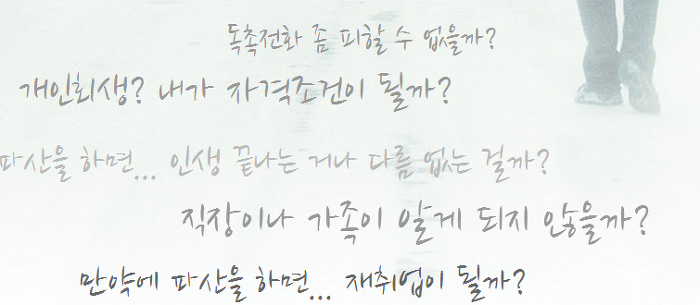 독촉전화 좀 피할 수 없을까?
개인회생? 내가 자격조건이 될까?
파산을 하면... 인생 끝나는 거나 다름 없는 걸까?
직장이나 가족이 알게 되지 않을까?
만약에 파산을 하면... 재취업이 될까?